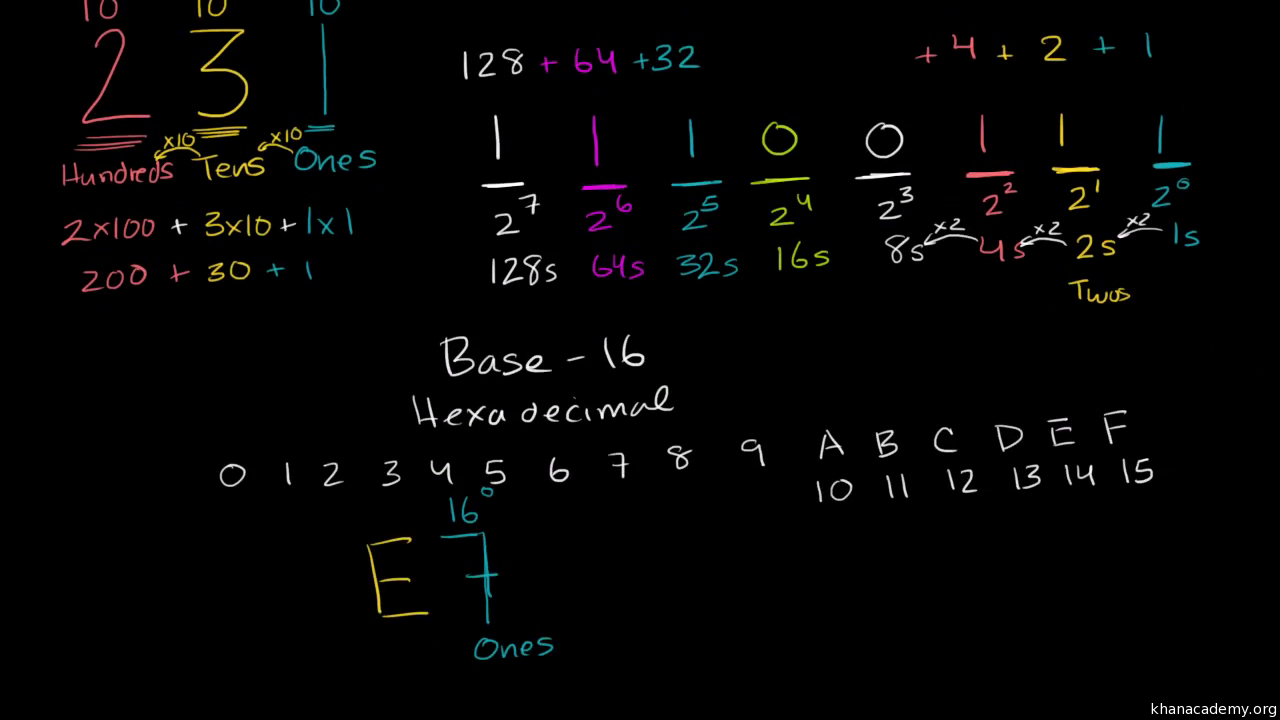 10 10 10
2 3 1
x10 x10
Hundreds Tens Ones
2x100 + 3x10 + 1x1
200 + 30 + 1
128 + 64 + 32 + 4 + 2 + 1
1 1 1 0 0 1 1 1
2^7 2^6 2^5 2^4 2^3 2^2 2^1 2^0
x2 x2 x2
128s 64s 32s 16s 8s 4s 2s 1s
Twos
Base - 16
Hexadecimal
A B C D E F
0 1 2 3 4 5 6 7 8 9 10 11 12 13 14 15
16^0
E 7
Ones
khanacademy.org